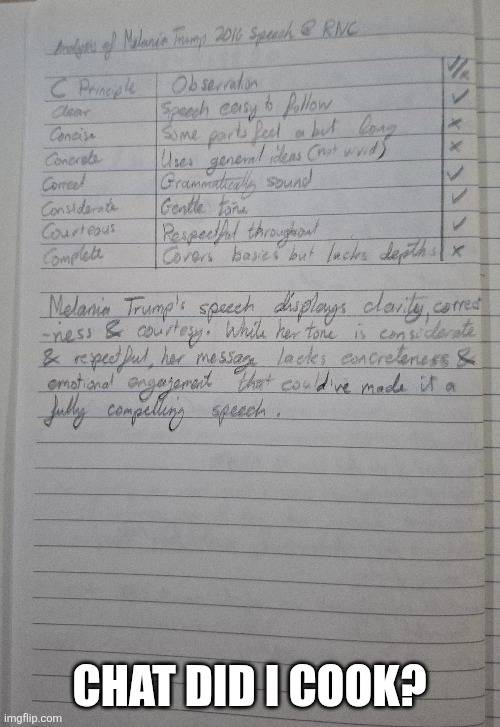 Analysis of Melania Trump 2016 Speech @ RNC
C Principle Observation ✓/x
Clear Speech easy to follow ✓
Concise Some parts feel a but long x
Concrete Uses general ideas (not vivid) x
Correct Grammatically sound ✓
Considerate Gentle tone ✓
Courteous Respectful throughout ✓
Complete Covers basics but lacks depths x
Melania Trump's speech displays clarity, correct
-ness & courtesy. While her tone is considerate
& respectful, her message lacks concreteness &
emotional engagement that could've made it a
fully compelling speech.
CHAT DID I COOK?
imgflip.com